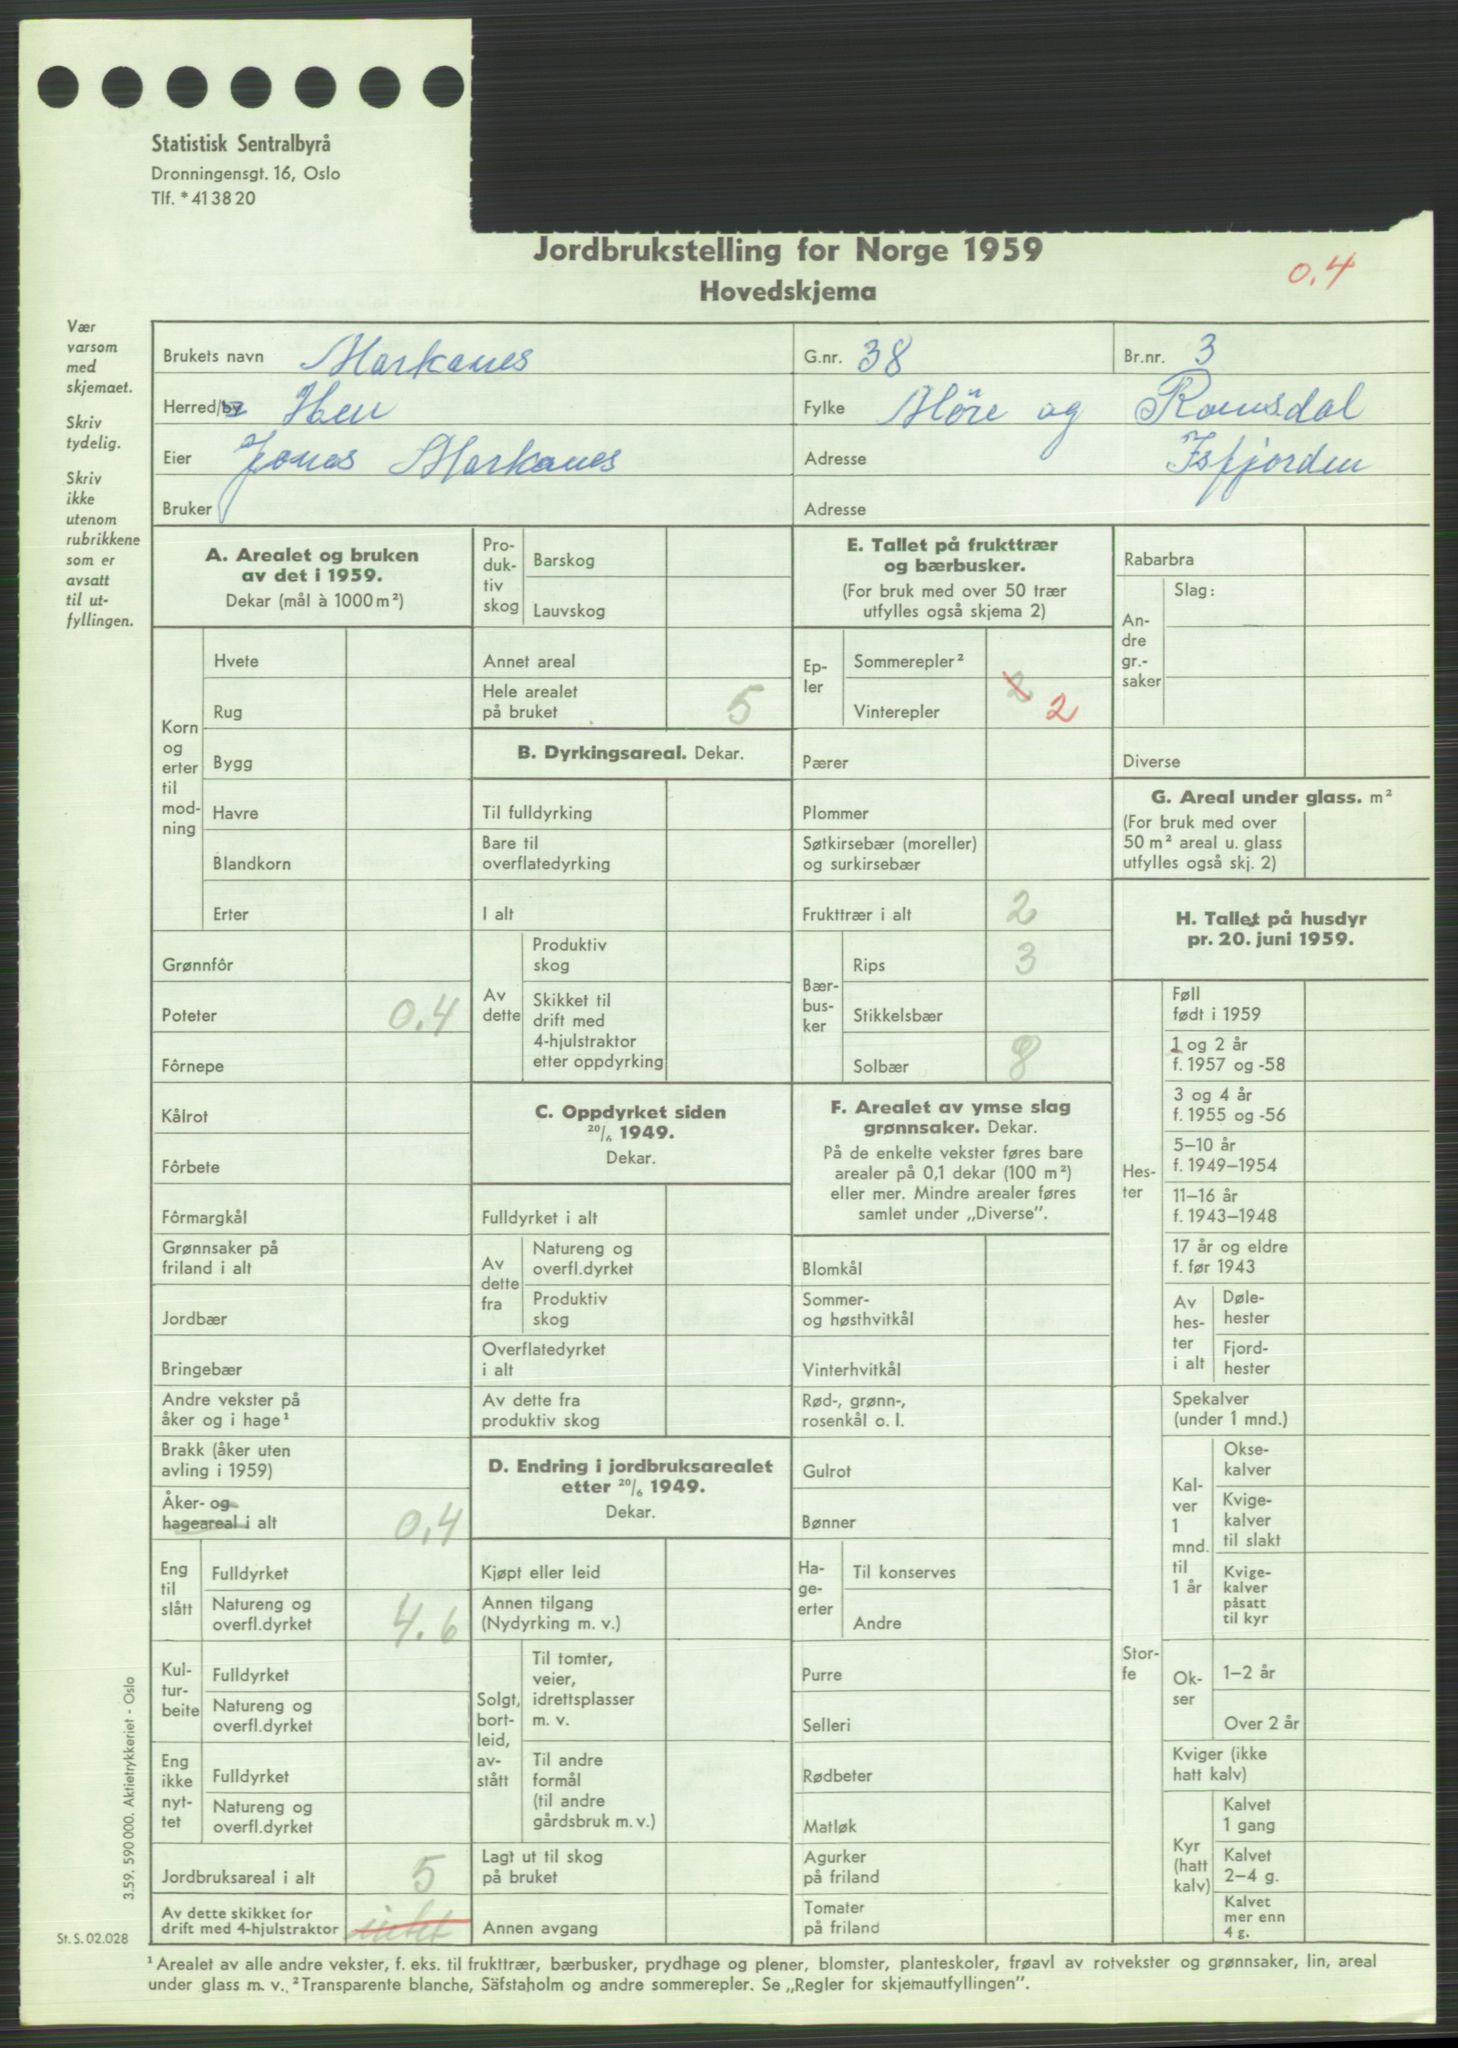 Statistisk Sentralbyrå
Dronningensgt. 16, Oslo
Tlf. * 41 38 20
Jordbrukstelling for Norge 1959
Hovedskjema
0.4
Vær
varsom
med
skjemaet.
Skriv
tydelig.
Skriv
ikke
utenom
rubrikkene
som er
avsatt
til ut-
fyllingen.
Brukets navn Markanes G.nr. 38 Br.nr. 3
Herred/by Hen Fylke Möre og Romsdal
Eier Jonas Markanes Adresse Isfjorden
Bruker Adresse
A. Arealet og bruken
av det i 1959.
Dekar (mål à 1000 m²)
Korn
og
erter
til
mod-
ning
Hvete
Rug
Bygg
Havre
Blandkorn
Erter
Grønnfôr
Poteter 0.4
Fôrnepe
Kålrot
Fôrbete
Fôrmargkål
Grønnsaker på
friland i alt
Jordbær
Bringebær
Andre vekster på
åker og i hage¹
Brakk (åker uten
avling i 1959)
Åker- og
hageareal i alt 0,4
Eng
til
slått
Fulldyrket
Natureng og
overfl.dyrket 4.6
Kul-
tur-
beite
Fulldyrket
Natureng og
overfl.dyrket
Eng
ikke
nyt-
tet
Fulldyrket
Natureng og
overfl.dyrket
Jordbruksareal i alt 5
Av dette skikket for
drift med 4-hjulstraktor intet
Pro-
duk-
tiv
skog
Barskog
Lauvskog
Annet areal
Hele arealet
på bruket 5
B. Dyrkingsareal. Dekar.
Til fulldyrking
Bare til
overflatedyrking
I alt
Av
dette
Produktiv
skog
Skikket til
drift med
4-hjulstraktor
etter oppdyrking
C. Oppdyrket siden
20/6 1949.
Dekar.
Fulldyrket i alt
Av
dette
fra
Natureng og
overfl.dyrket
Produktiv
skog
Overflatedyrket
i alt
Av dette fra
produktiv skog
D. Endring i jordbruksarealet
etter 20/6 1949.
Dekar.
Kjøpt eller leid
Annen tilgang
(Nydyrking m. v.)
Solgt,
bort-
leid,
av-
stått
Til tomter,
veier,
idrettsplasser
m. v.
Til andre
formål
(til andre
gårdsbruk m. v.)
Lagt ut til skog
på bruket
Annen avgang
E. Tallet på frukttrær
og bærbusker.
(For bruk med over 50 trær
utfylles også skjema 2)
Ep-
ler
Sommerepler²
2
Vinterepler 2
Pærer
Plommer
Søtkirsebær (moreller)
og surkirsebær
Frukttrær i alt 2
Bær-
bus-
ker
Rips 3
Stikkelsbær
Solbær 8
F. Arealet av ymse slag
grønnsaker. Dekar.
På de enkelte vekster føres bare
arealer på 0,1 dekar (100 m²)
eller mer. Mindre arealer føres
samlet under „Diverse”.
Blomkål
Sommer-
og høsthvitkål
Vinterhvitkål
Rød-, grønn-,
rosenkål o. l.
Gulrot
Bønner
Ha-
ge-
erter
Til konserves
Andre
Purre
Selleri
Rødbeter
Matløk
Agurker
på friland
Tomater
på friland
Rabarbra
An-
dre
gr.-
saker
Slag:
Diverse
G. Areal under glass. m²
(For bruk med over
50 m² areal u. glass
utfylles også skj. 2)
H. Tallet på husdyr
pr. 20. juni 1959.
Hes-
ter
Føll
født i 1959
1 og 2 år
f. 1957 og -58
3 og 4 år
f. 1955 og -56
5–10 år
f. 1949–1954
11–16 år
f. 1943–1948
17 år og eldre
f. før 1943
Av
hes-
ter
i alt
Døle-
hester
Fjord-
hester
Stor-
fe
Spekalver
(under 1 mnd.)
Kal-
ver
1
mnd.
til
1 år
Okse-
kalver
Kvige-
kalver
til slakt
Kvige-
kalver
påsatt
til kyr
Ok-
ser
1–2 år
Over 2 år
Kviger (ikke
hatt kalv)
Kyr
(hatt
kalv)
Kalvet
1 gang
Kalvet
2–4 g.
Kalvet
mer enn
4 g.
3.59. 590 000. Aktietrykkeriet - Oslo
St. S. 02.028
¹ Arealet av alle andre vekster, f. eks. til frukttrær, bærbusker, prydhage og plener, blomster, planteskoler, frøavl av rotvekster og grønnsaker, lin, areal
under glass m. v. ² Transparente blanche, Säfstaholm og andre sommerepler. Se „Regler for skjemautfyllingen”.